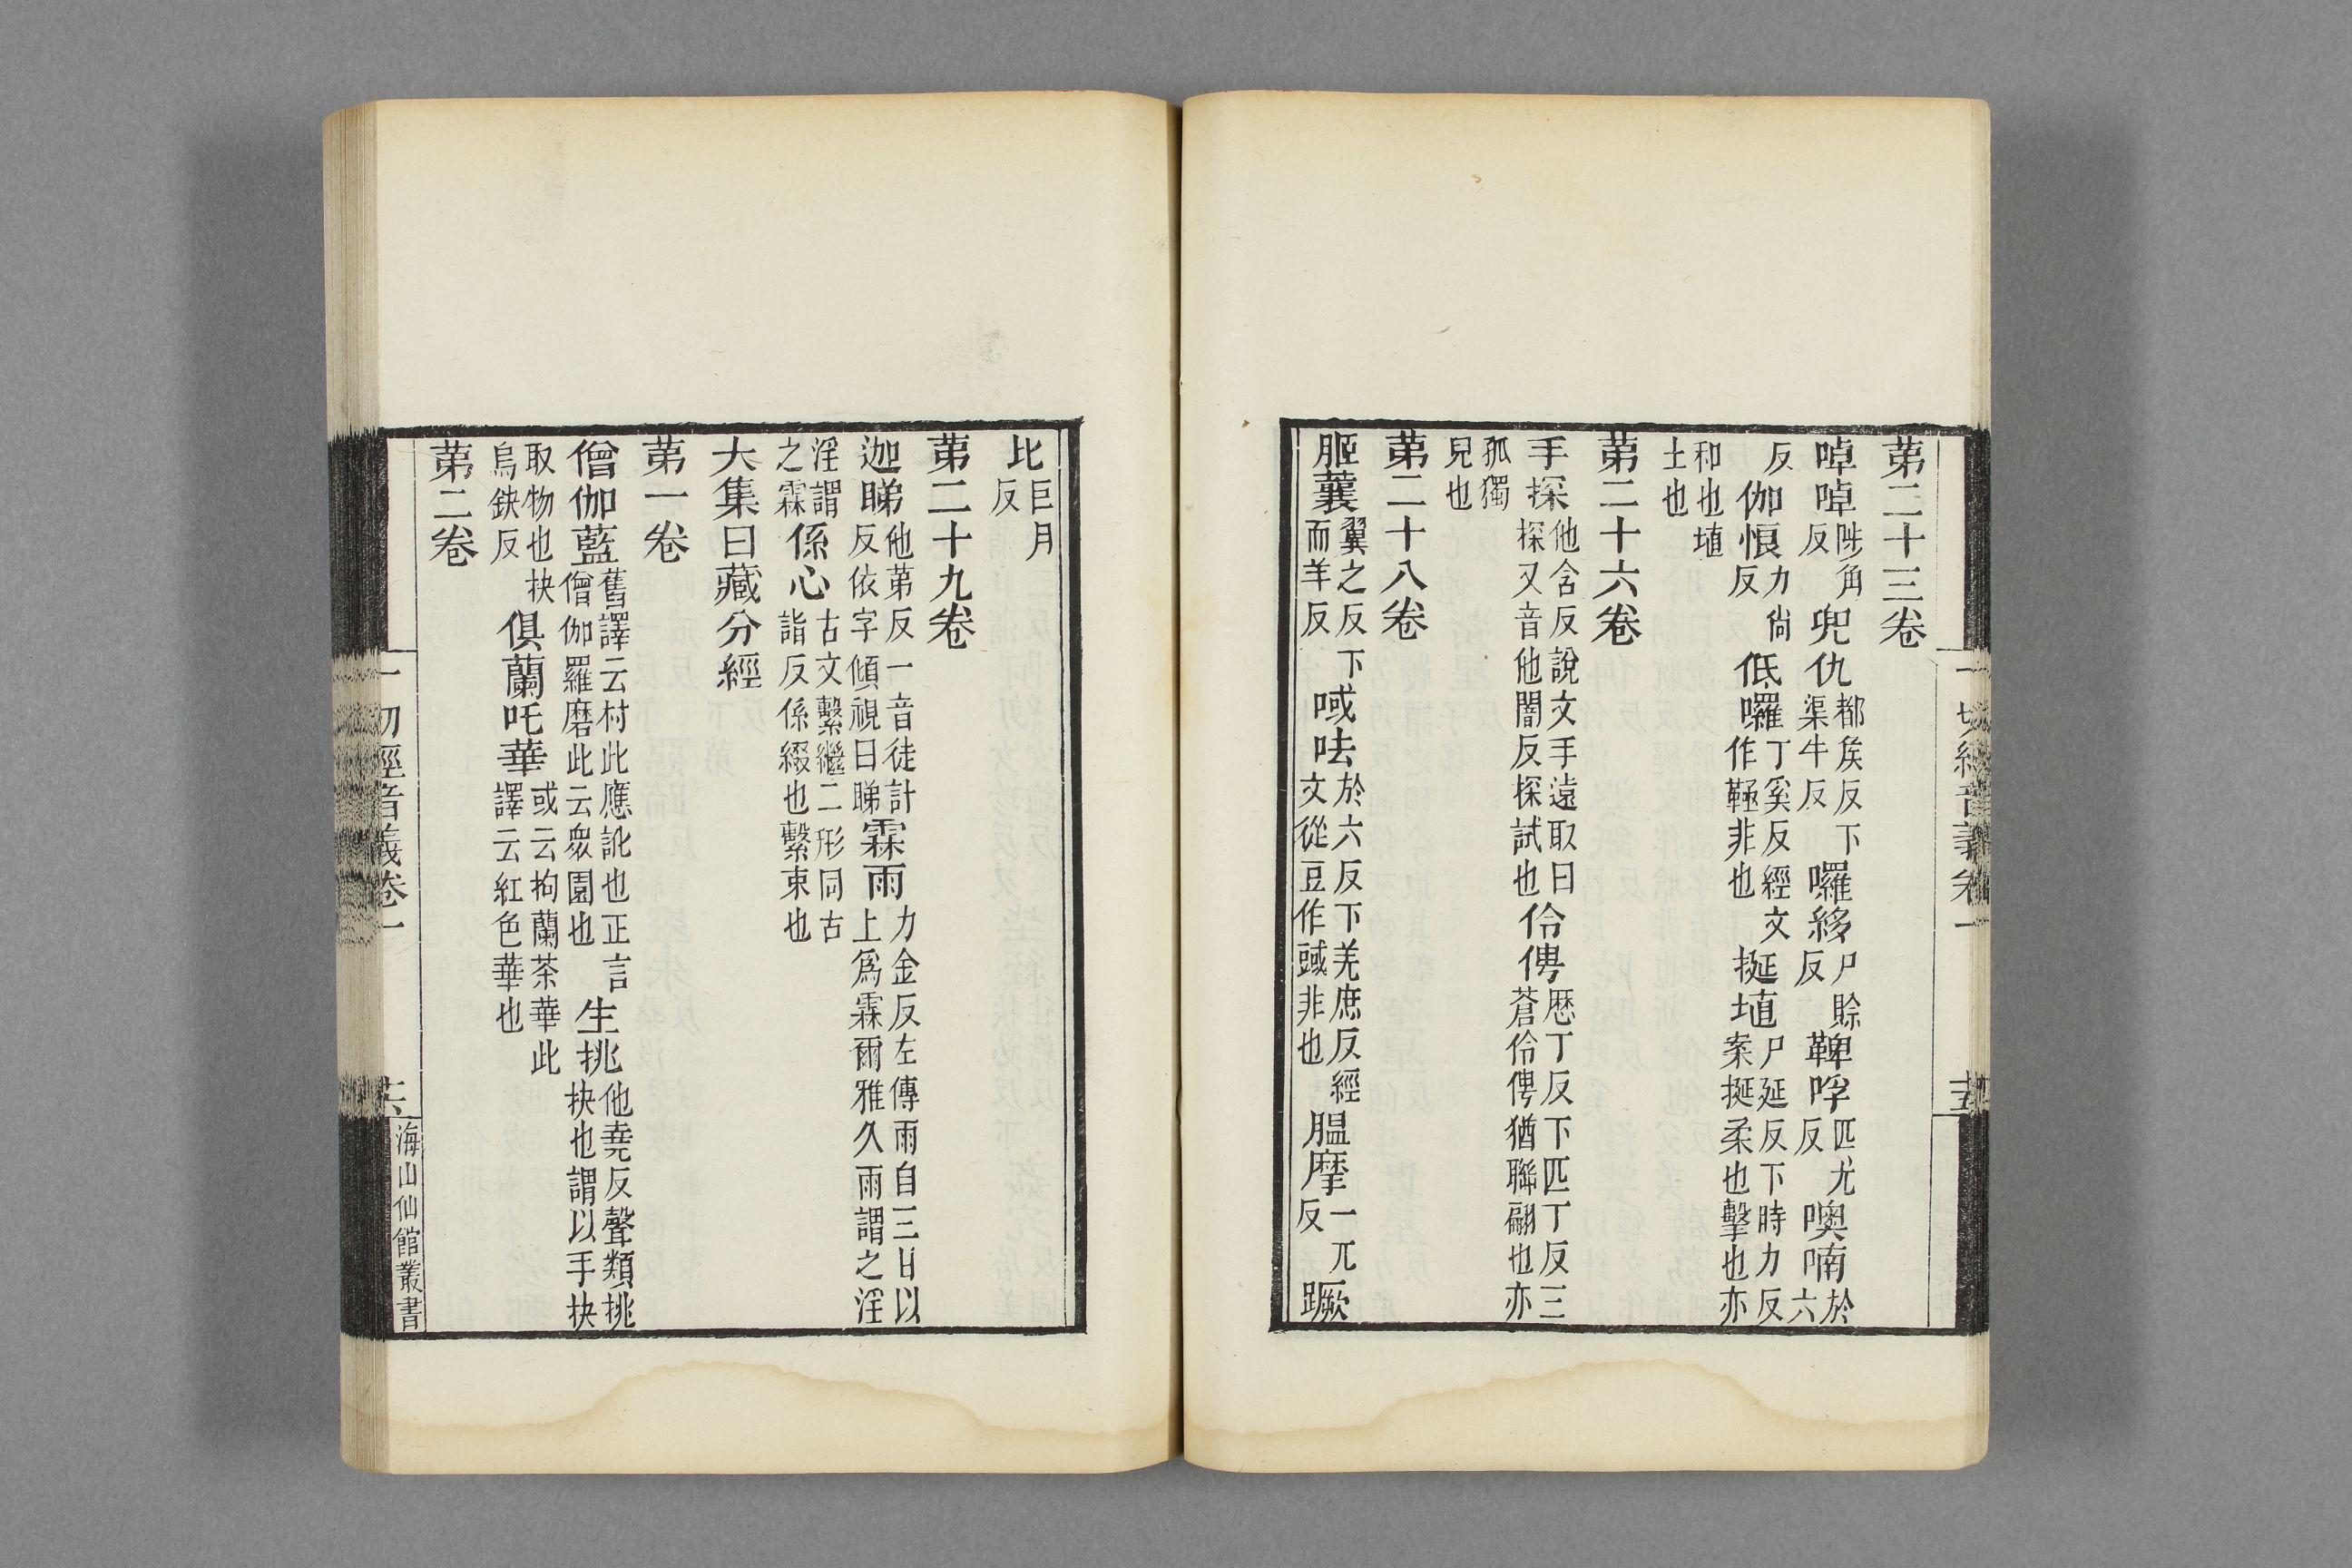 一切經音義卷一
第二十三卷
啅啅陟角反兜仇都矦反下渠牛反囉尸賒反鞞哹匹尤反噢喃於六
反伽悢力尙反低囉丁奚反經文作非也挻埴尸延反下時力反案挻柔也擊也亦
和也埴土也
第二十六卷
手探他含反說文手遠取曰探又音他闇反探試也伶俜歷丁反下匹丁反三蒼伶俜猶聯翩也亦
孤獨皃也
第二十八卷
蘘翼之反下而羊反呿於六反下羌庶反經文從豆作非也膃摩一兀反蹶
比巨月反
第二十九卷
迦睇他第反一音徒計反依字傾視曰睇霖雨力金反左傳雨自三日以上爲霖爾雅久雨謂之淫
淫謂之霖係心古文繫繼二形同古詣反係綴也繫束也
大集日藏分經
第一卷
僧伽藍舊譯云村此應訛也正言僧伽羅磨此云衆園也生挑他堯反聲類挑抉也謂以手抉
取物也抉烏鈌反俱蘭吒華或云拘蘭茶華此譯云紅色華也
第二卷
一切經音義卷一
海山仙館叢書